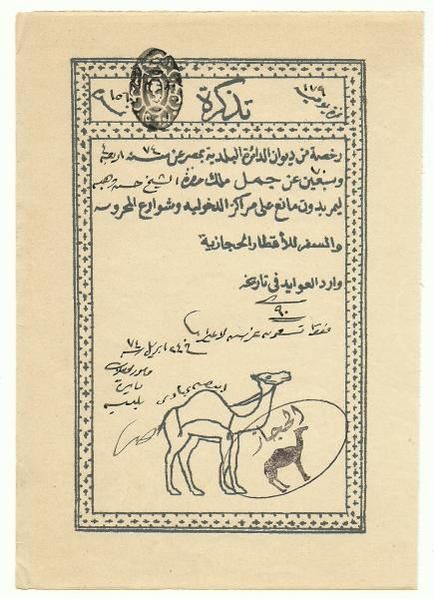 نمرة يومية ١٧٩
تذكرة
رخصة من ديوان الدائرة البلدية بمصر عن سنه ٧٤ اربعة
وسبعين عن جمل ملك حضرة الشيخ حسن
ليمر بدون مانع على مراكز الدخوليه وشوارع المحروسه
والسفر للأقطار الحجازية
وارد العوايد فى تاريخه
٩٠
فقط تسعون غرش لا غير
فى ٢٤ ابريل سنه ٧٤
الحجاز